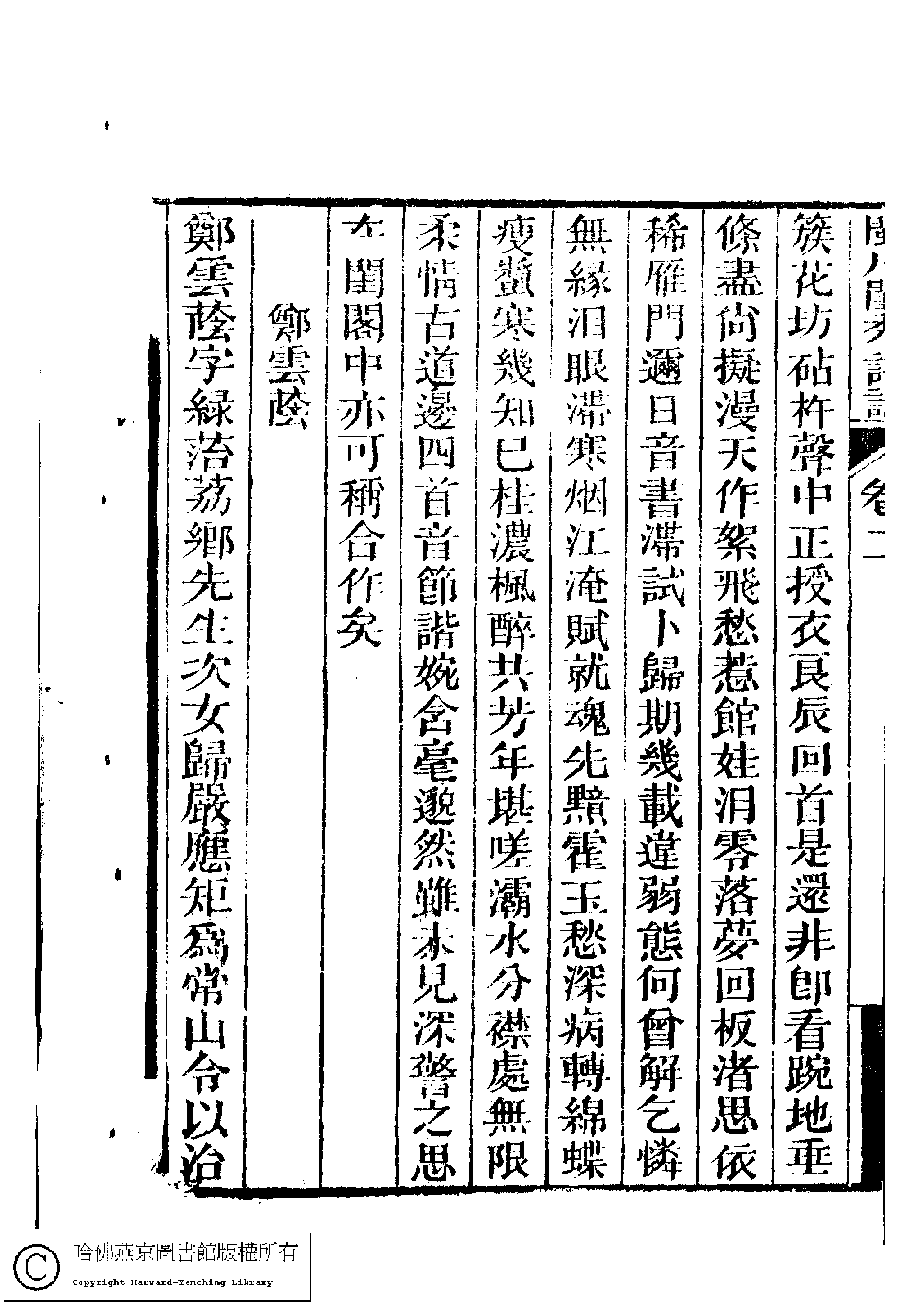 閩川閨秀詩話 卷二
簇花坊砧杵聲中正授衣良辰回首是還非郎看踠地垂
條盡尙擬漫天作絮飛愁惹館娃泪零落夢回板渚思依
稀雁門邇日音書滯試卜歸期幾載違弱態何曾解乞憐
無緣泪眼滯寒烟江淹賦就魂先黯霍玉愁深病轉綿蝶
瘦蛩寒幾知已桂濃楓醉共芳年堪嗟灞水分襟處無限
柔情古道邊四首音節諧婉含毫邈然雖未見深警之思
在閨閣中亦可稱合作矣
鄭雲蔭
鄭雲蔭字綠菭荔鄉先生次女歸嚴應矩爲常山令以治
哈佛燕京圖書館版權所有
Copyright Harvard-Yenching Library